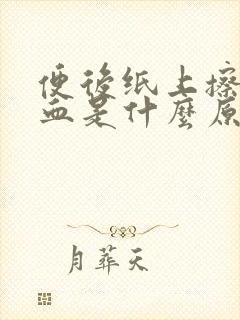 便后纸上擦
血是什麼原
月葬天